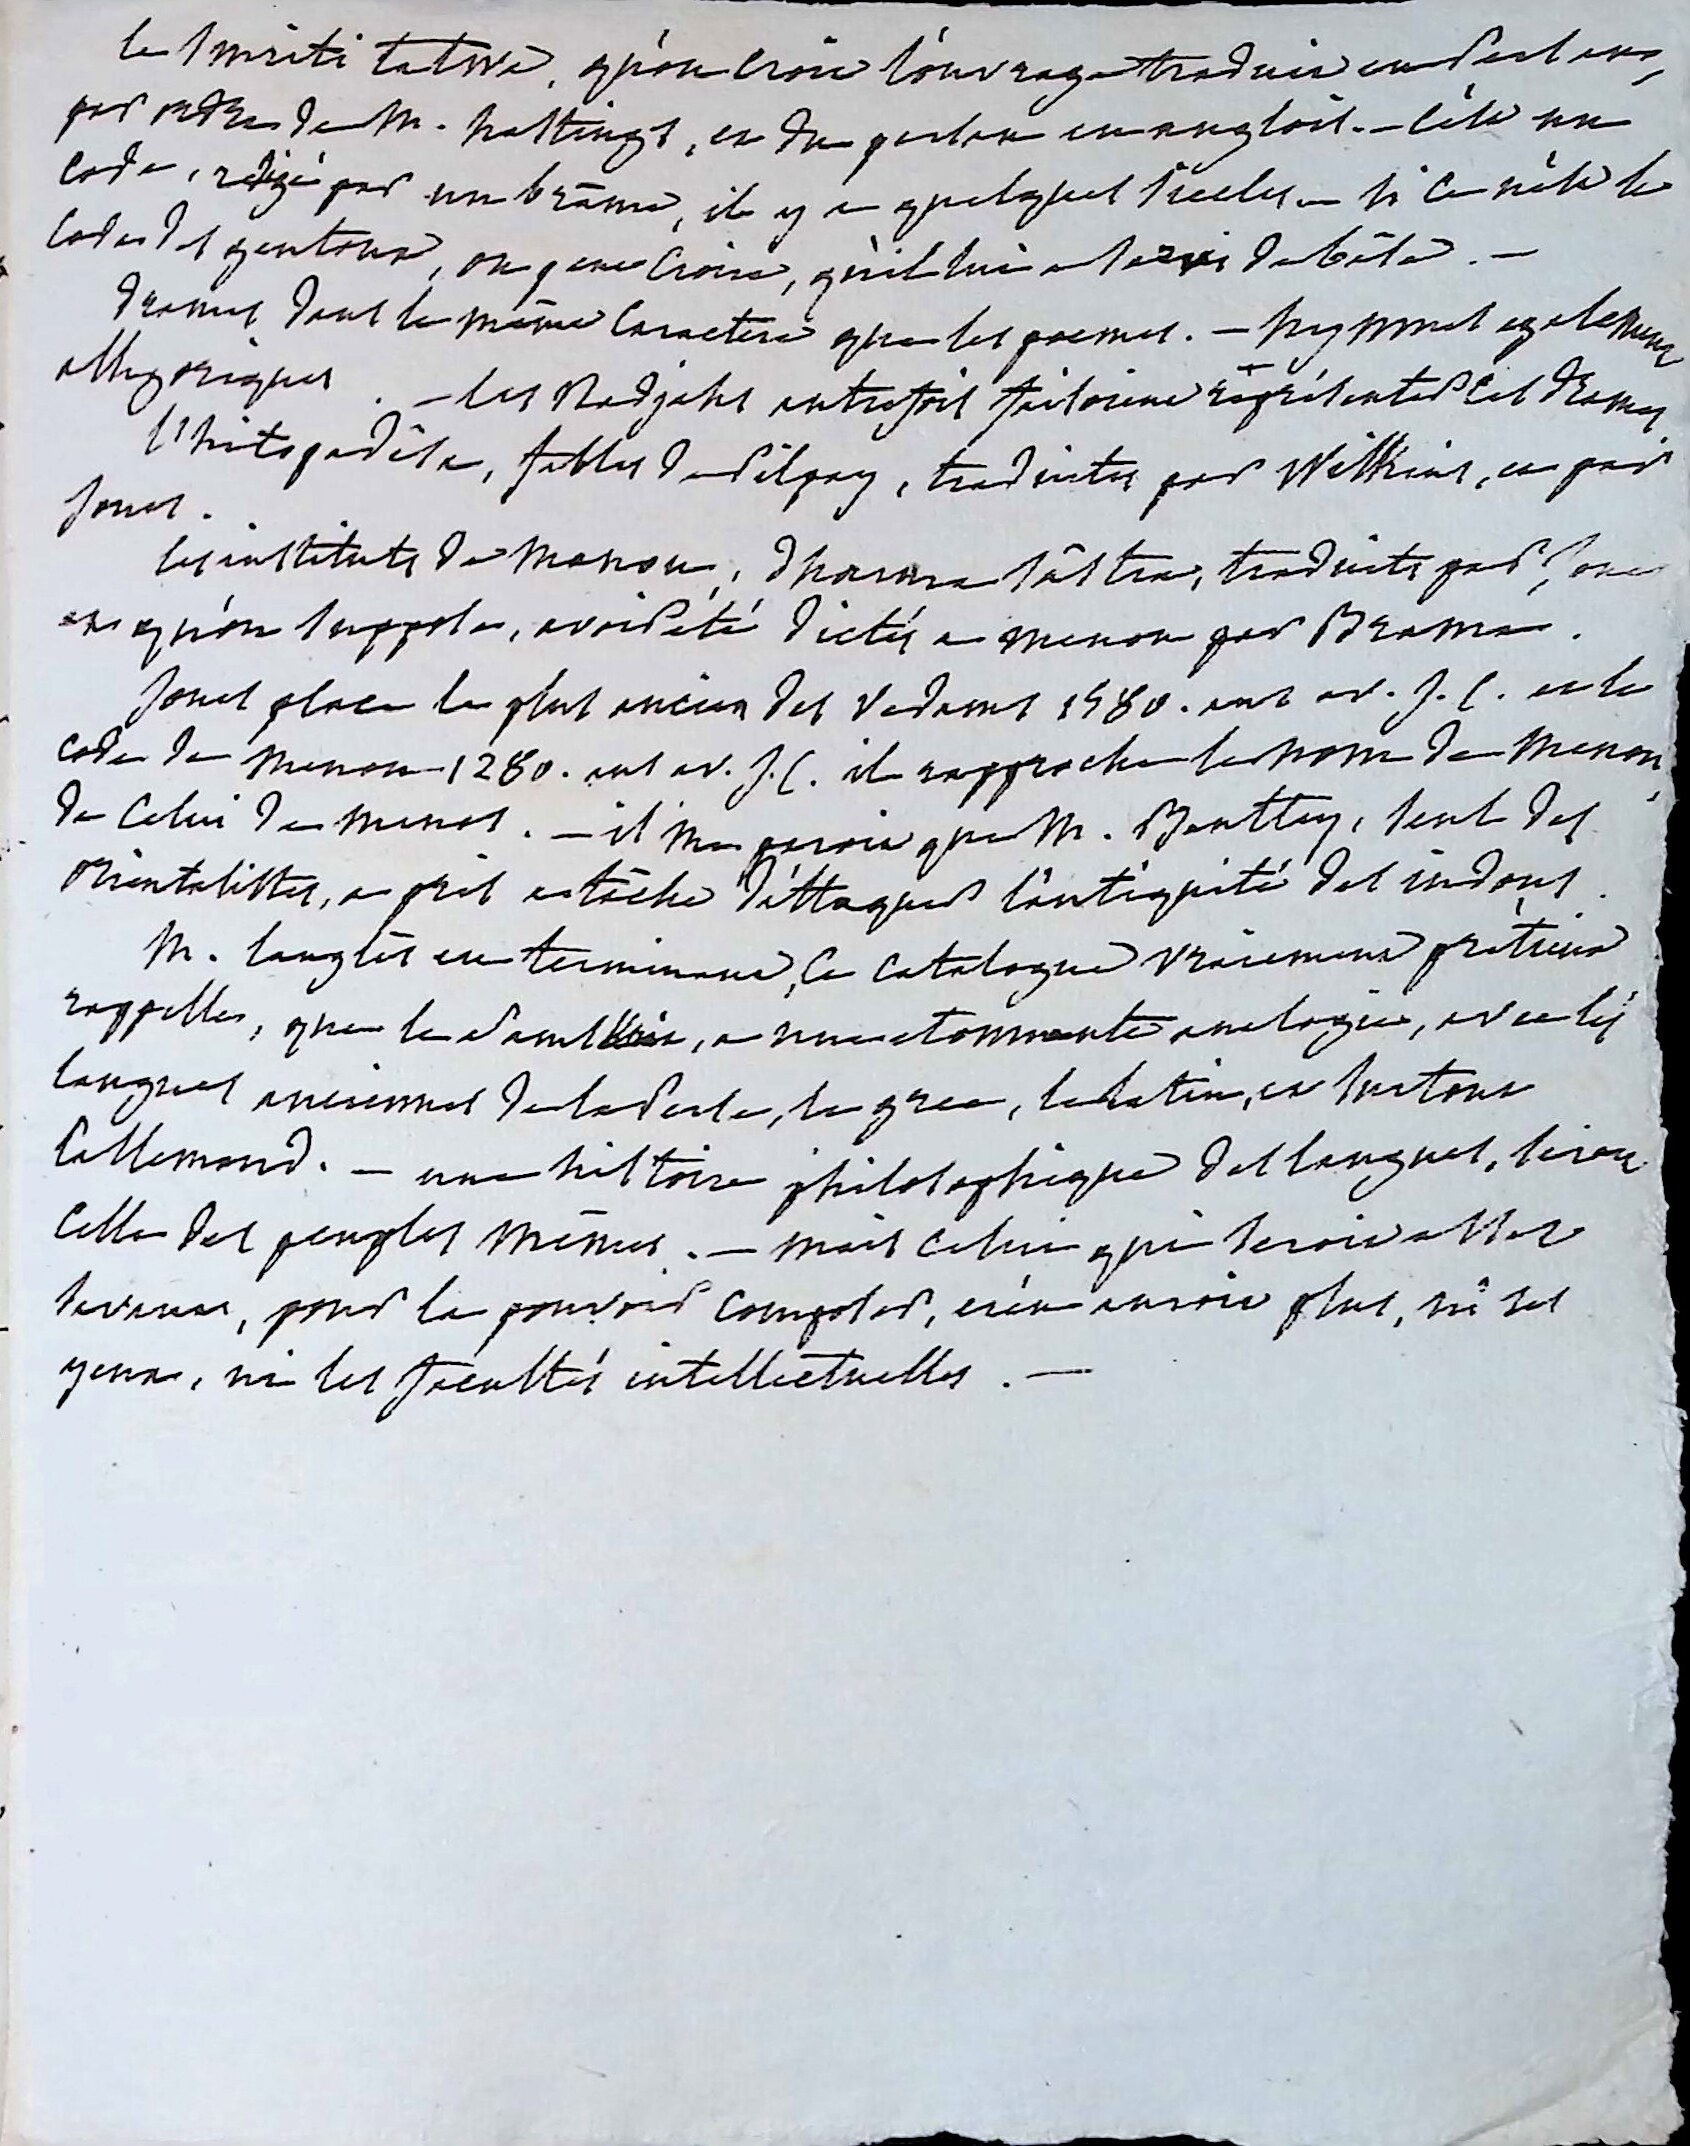 le Smriti tatwa, qu'on croit l'ouvrage traduit en persan,
par ordre de M. hastings, et du persan en anglois. — c'est un
code, rédigé par un brâme, il y a quelques siecles. — si ce n'est le
code des gentoux, on peut croire, qu'il lui a servi de base. —
drames dans le même caractere que les poemes. — hymnes egalement
allegoriques. — les Radjahs autrefois faisoient représenter ces drames
l'hitopadesa, fables de Pilpay, traduites par Wilkins, et par
Jones.
les instituts de Menou, dharma sâstra, traduits par Jones
et qu'on suppose, avoir été dictés a menou par Brama.
Jones place le plus ancien des vedams 1580. ans av. J. C. et le
code de menou 1280. ans av. J. C. il rapproche le nom de Menou,
de celui de minos. — il me paroit que M. Benttley, seul des
orientalistes, a pris a tâche d'attaquer l'antiquité des indous.
M. langlès en terminant, ce catalogue vraiment prétieux
rappelle, que le samskrit, a une etonnante analogie, avec les
langues anciennes de la Perse, le grec, le latin, et surtout
l'allemand. — une histoire philosophique des langues, seroit
celle des peuples mêmes. — mais celui qui seroit assez
savant, pour la pouvoir composer, n'en auroit plus, ni les
yeux, ni les facultés intellectuelles. —